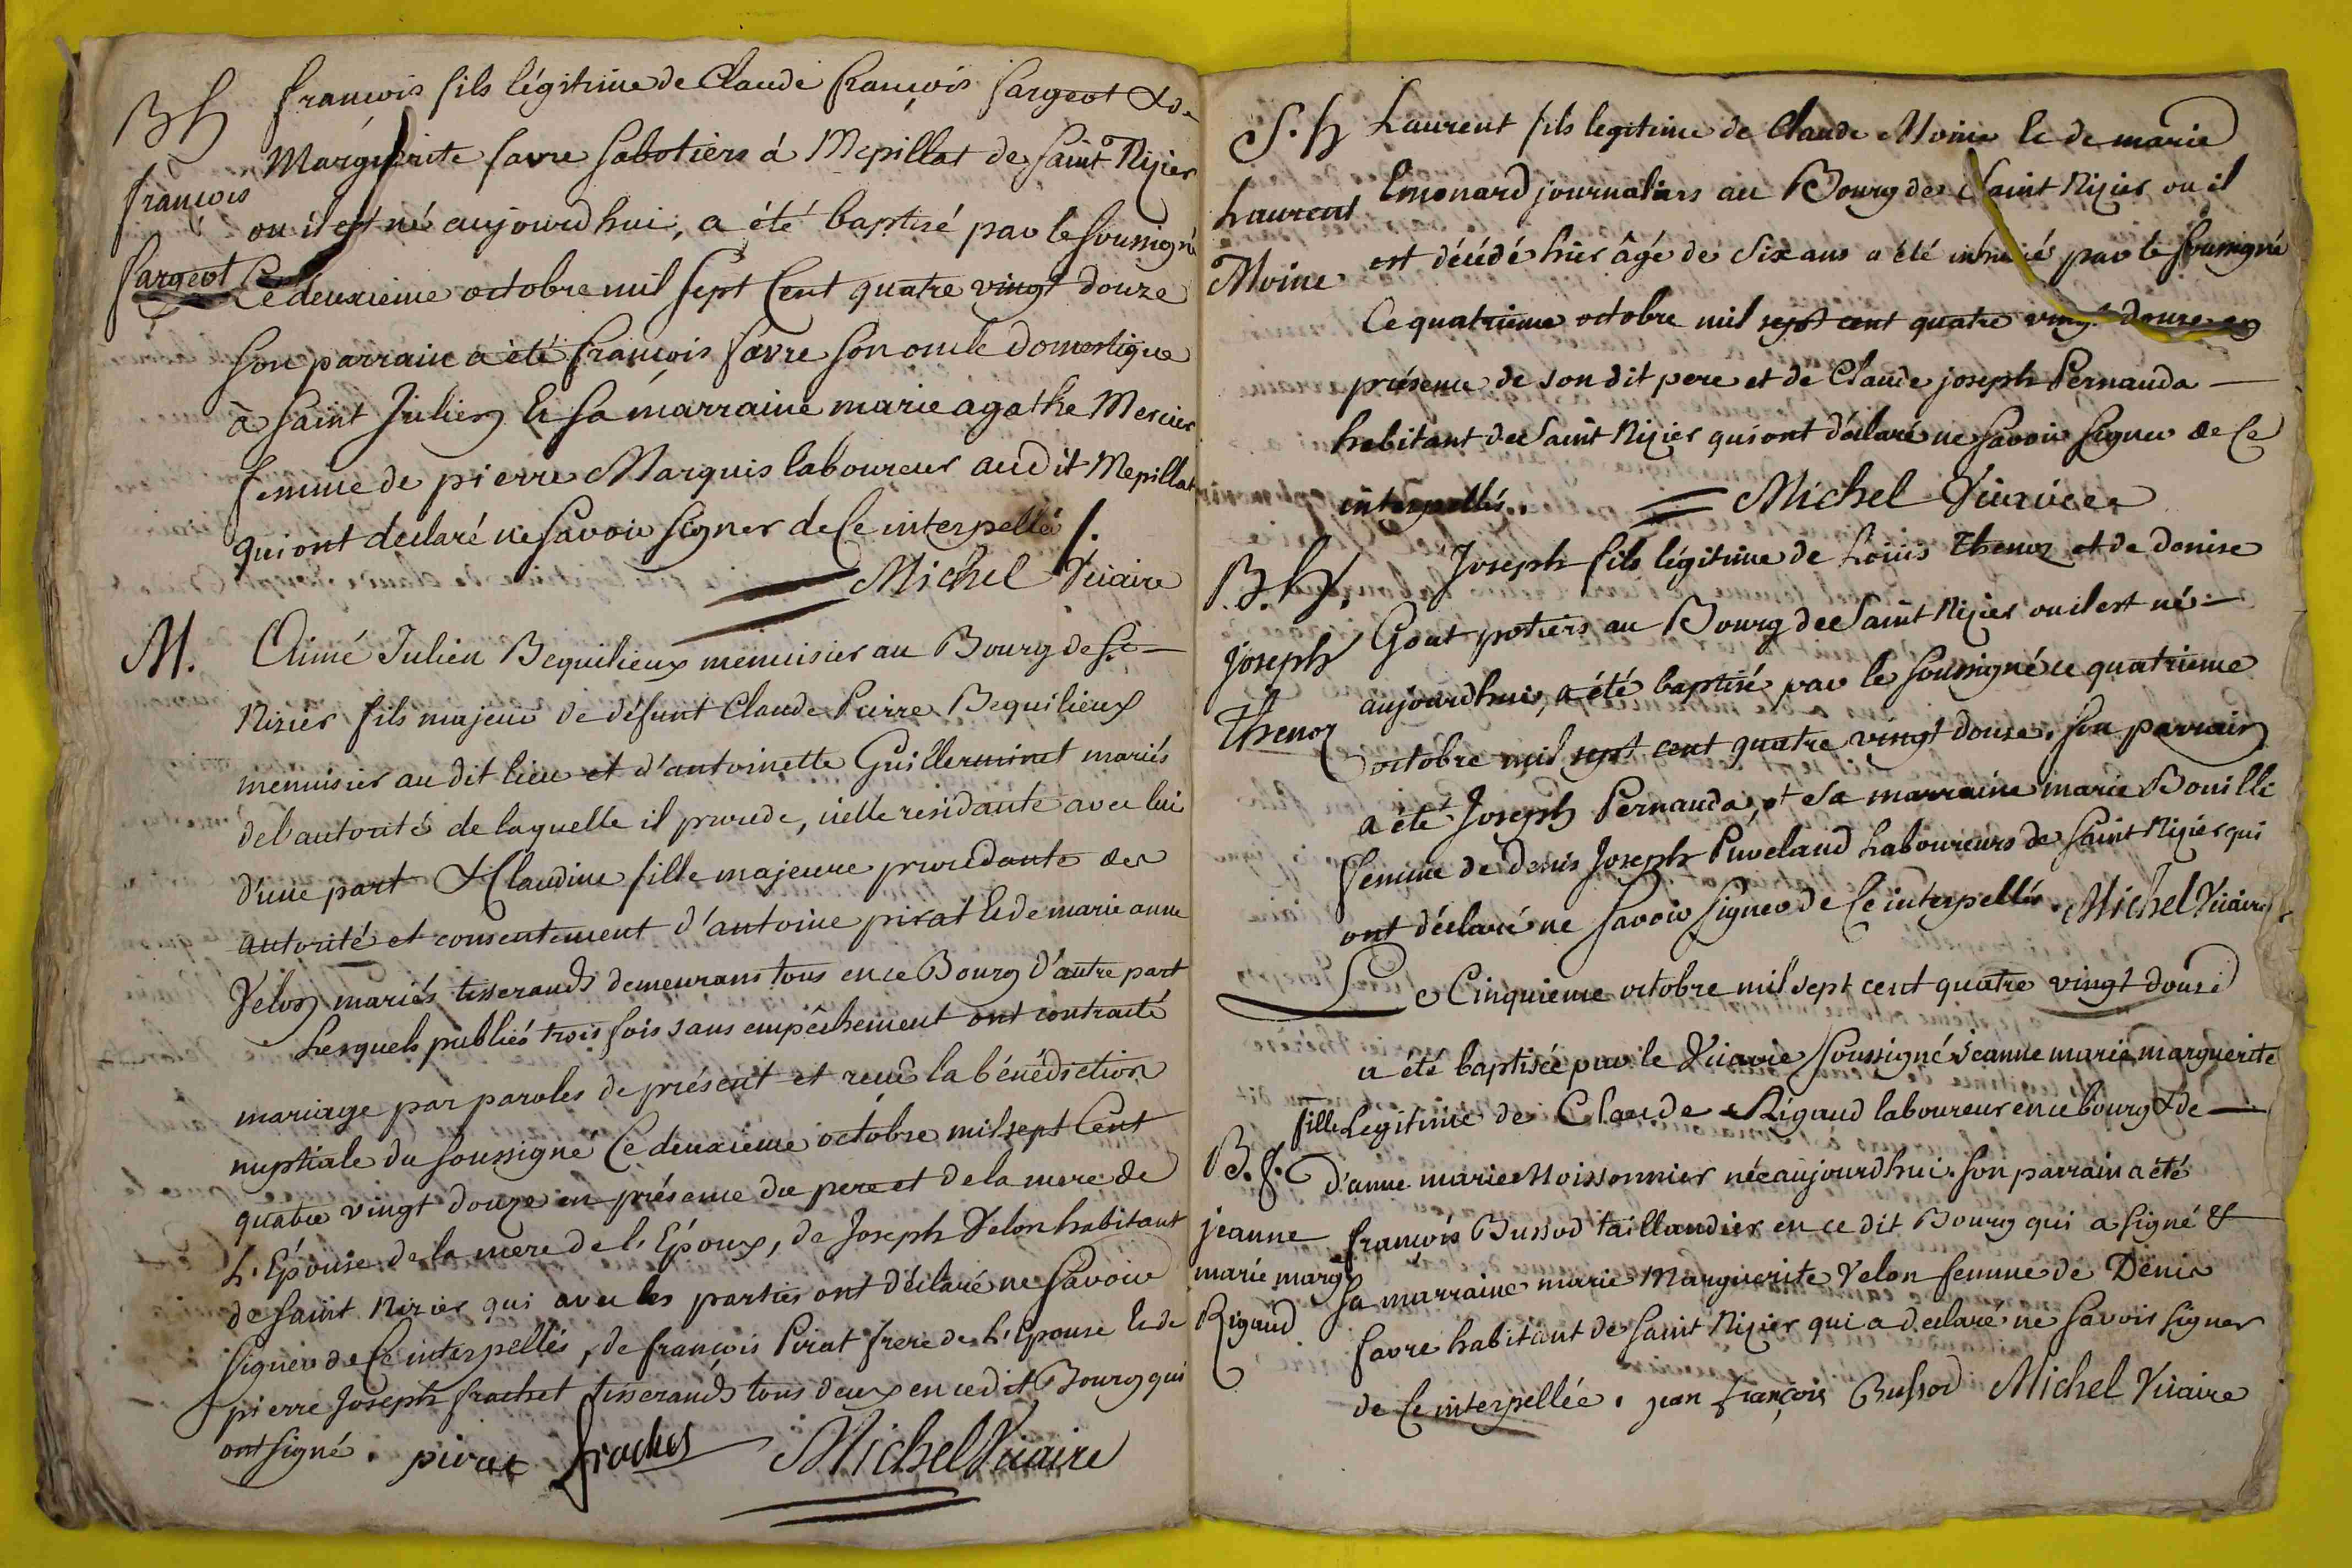 Bh
françois
Sargeot
françois fils légitime de Claude françois Sargeot & de
Marguerite favre Sabotiers à Mepillat de Saint Nizier
ou il est né aujourdhui, a été baptisé par le Soussigné
Ce deuxieme octobre mil Sept Cent quatre vingt douze
Son parrain a été françois favre Son oncle domestique
à Saint Julien & Sa marraine marie agathe Mercier
femme de pierre Marquis laboureur audit Mepillat
qui ont declaré ne Savoir Signer de Ce interpellé /.
Michel Vicaire
M.
Aimé Julien Bequilieux menuisier au Bourg de St
Nizier fils majeur de défunt Claude Pierre Bequilieux
menuisier au dit lieu et d'antoinette Guillerminet mariés
de l'autorité de laquelle il procede, icelle residante avec lui
d'une part & Claudine fille majeure procedante de
autorité et consentement d'antoine pirat & de marie anne
Velon mariés tisserands demeurans tous en ce Bourg d'autre part
Lesquels publiés trois fois sans empêchement ont contracté
mariage par paroles de présent et recu la bénédiction
nuptiale du soussigné Ce deuxieme octobre mil sept Cent
quatre vingt douze en présence du pere et de la mere de
L'Épouse de la mere de l'Époux, de Joseph Velon habitant
de Saint Nizier qui avec les parties ont déclaré ne Savoir
Signer de Ce interpellés, de françois Pirat frere de L'Epouse & de
pierre Joseph frachet tisserands tous deux en cedit Bourg qui
ont signé. pirat frachet Michel Vicaire
S. h
Laurent
Moine
Laurent fils legitime de Claude Moine & de marie
Emonard journaliers au Bourg de Saint Nizier ou il
est décédé hier âgé de Six ans a été inhumé par le Soussigné
Ce quatrieme octobre mil sept cent quatre vingt douze en
présence de son dit pere et de Claude joseph Pernauda
habitant de Saint Nizier qui ont déclaré ne Savoir Signer de Ce
interpellés. Michel Vicaire
B. h.
Joseph
Thenoz
Joseph fils légitime de Louis Thenoz et de denise
Gout potiers au Bourg de Saint Nizier ou il est né
aujourdhui, a été baptisé par le Soussigné ce quatrieme
octobre mil sept cent quatre vingt douze. Son parrain
a été Joseph Pernauda, et Sa marraine marie Bouille
femme de denis Joseph Puveland Laboureurs de Saint Nizier qui
ont déclaré ne Savoir Signer de Ce interpellés. Michel Vicaire
Le Cinquieme octobre mil sept cent quatre vingt douze
a été baptisée par le Vicaire Soussigné Jeanne marie marguerite
fille Legitime de Claude Rigaud laboureur en ce bourg & de
B. f.
jeanne
marie margte
Rigaud
d'anne marie Moissonnier née aujourdhui. Son parrain a été
françois Bussod taillandier en ce dit Bourg qui a signé &
Sa marraine marie Marguerite Velon femme de Denis
favre habitant de Saint Nizier qui a declaré ne Savoir Signer
de Ce interpellée. jean françois Bussod Michel Vicaire